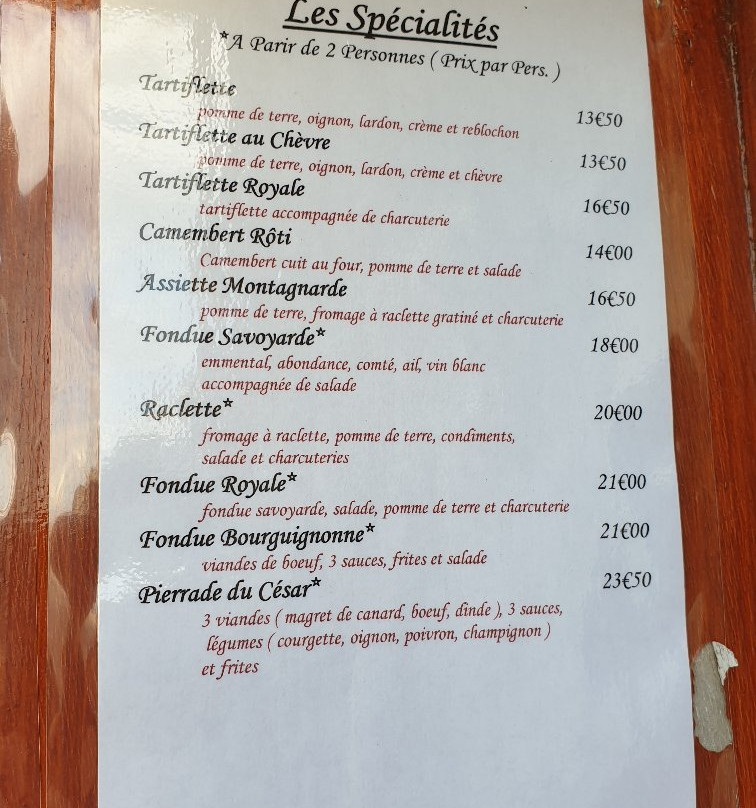 Les Spécialités
*A Parir de 2 Personnes ( Prix par Pers. )
Tartiflette
pomme de terre, oignon, lardon, crème et reblochon 13€50
Tartiflette au Chèvre
pomme de terre, oignon, lardon, crème et chèvre 13€50
Tartiflette Royale 16€50
tartiflette accompagnée de charcuterie
Camembert Rôti 14€00
Camembert cuit au four, pomme de terre et salade
Assiette Montagnarde 16€50
pomme de terre, fromage à raclette gratiné et charcuterie
Fondue Savoyarde* 18€00
emmental, abondance, comté, ail, vin blanc
accompagnée de salade
Raclette* 20€00
fromage à raclette, pomme de terre, condiments,
salade et charcuteries
Fondue Royale* 21€00
fondue savoyarde, salade, pomme de terre et charcuterie
Fondue Bourguignonne* 21€00
viandes de boeuf, 3 sauces, frites et salade
Pierrade du César* 23€50
3 viandes ( magret de canard, boeuf, dinde ), 3 sauces,
légumes ( courgette, oignon, poivron, champignon )
et frites